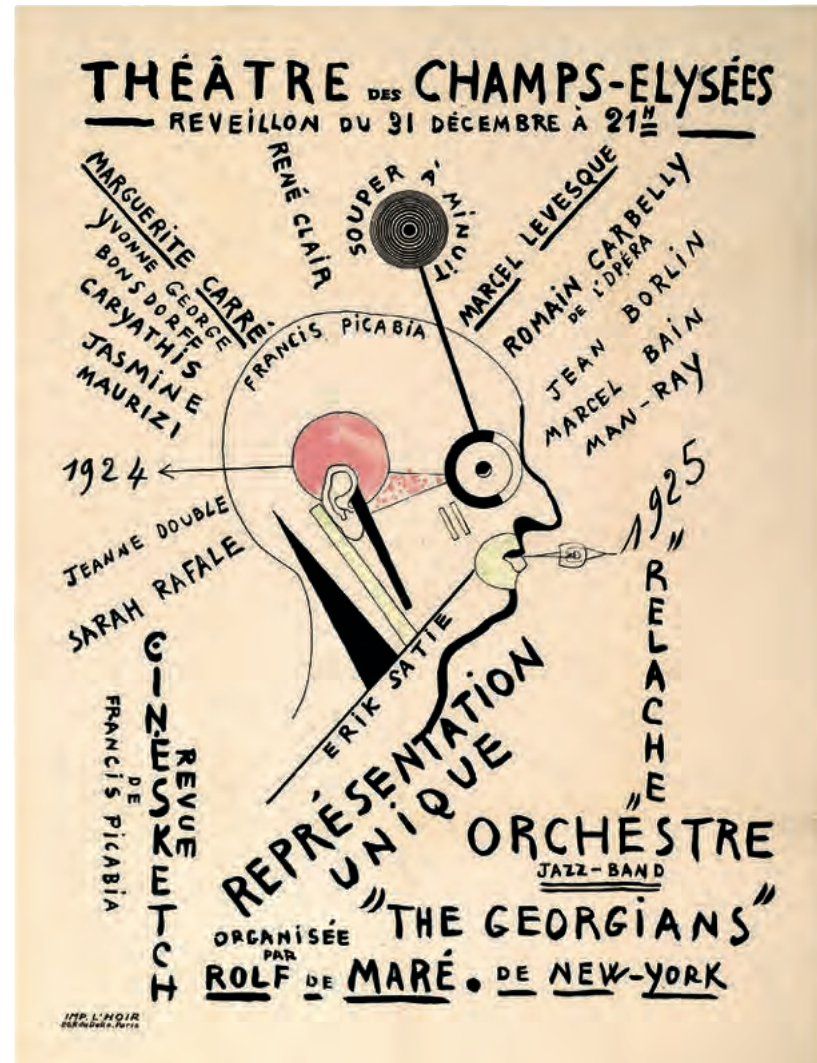 THÉÂTRE DES CHAMPS-ELYSÉES
REVEILLON DU 31 DÉCEMBRE À 21H
MARGUERITE CARRÉ
YVONNE GEORGE
BONSDORFF
CARYATHIS
JASMINE
MAURIZI
RENÉ CLAIR
SOUPER À MINUIT
MARCEL LEVESQUE
ROMAIN CARBELLY
DE L'OPÉRA
JEAN BORLIN
MARCEL BAIN
MAN-RAY
FRANCIS PICABIA
1924
1925
JEANNE DOUBLE
SARAH RAFALE
ERIK SATIE
"RELACHE"
CINÉSKETCH
REVUE
DE
FRANCIS PICABIA
REPRÉSENTATION
UNIQUE
ORCHÉSTRE
JAZZ-BAND
"THE GEORGIANS"
ORGANISÉE
PAR
ROLF DE MARÉ. DE NEW-YORK
IMP. L'HOIR